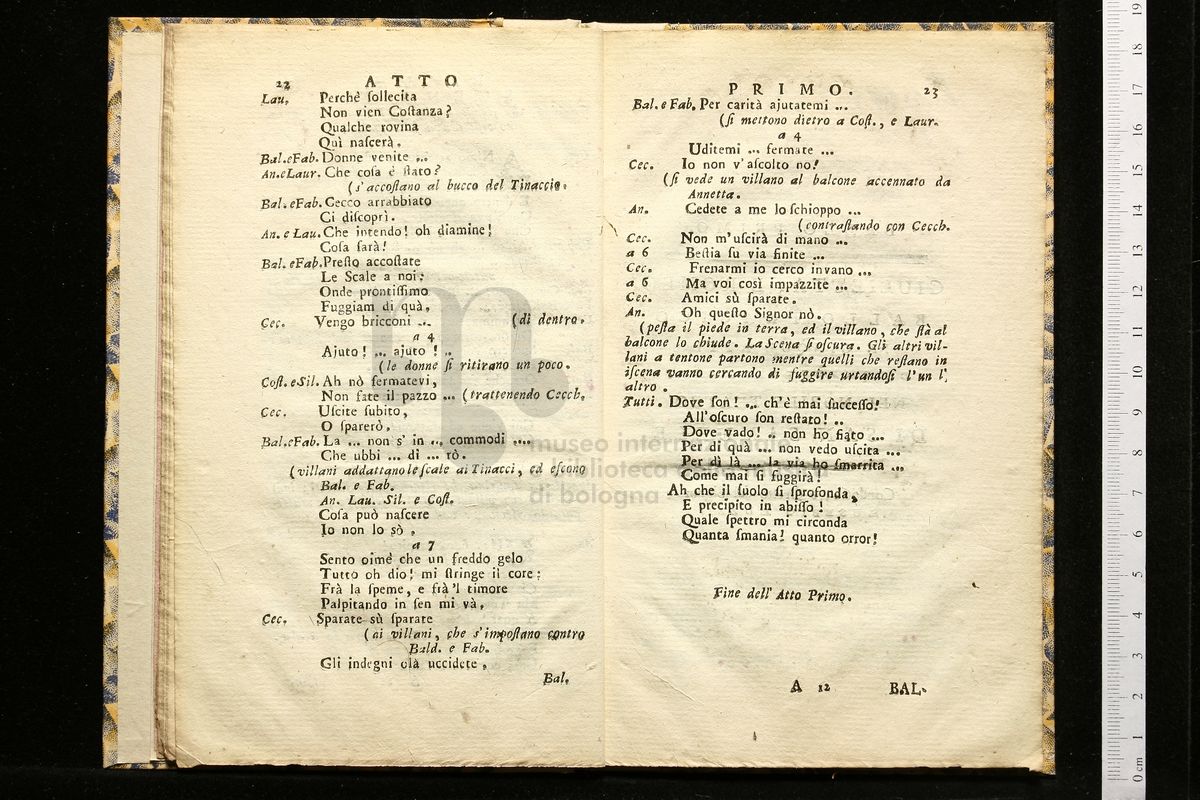 22 ATTO
Lau. Perchè ſollecita
Non vien Coſtanza?
Qualche rovina
Quì naſcerà.
Bal.eFab. Donne venite ...
An.eLaur. Che coſa è ſtato?
(s'accoſtano al bucco del Tinaccio.
Bal. eFab. Cecco arrabbiato
Ci diſcoprì.
An. e Lau. Che intendo! oh diamine!
Coſa ſarà!
Bal. eFab. Preſto accoſtate
Le Scale a noi:
Onde prontiſſimo
Fuggiam di quà.
Cec. Vengo bricconi ... (di dentro.
a 4
Ajuto! ... ajuto! ..
(le donne ſi ritirano un poco.
Coſt. eSil. Ah nò fermatevi,
Non fate il pazzo ... (trattenendo Cecch.
Cec. Uſcite ſubito,
O ſparerò.
Bal.eFab. La ... non s' in ... commodi ....
Che ubbi ... di ... rò.
(villani addattano le ſcale ai Tinacci, ed eſcono
Bal. e Fab.
An. Lau. Sil. e Coſt.
Coſa può naſcere
Io non lo sò.
a 7
Sento oimè che un freddo gelo
Tutto oh dio! mi ſtringe il core:
Frà la ſpeme, e frà'l timore
Palpitando in ſen mi và.
Cec. Sparate sù ſparate
(ai villani, che s'impoſtano contro
Bald. e Fab.
Gli indegni olà uccidete.
Bal.
PRIMO. 23
Bal. e Fab. Per carità ajutatemi ...
(ſi mettono dietro a Coſt., e Laur.
a 4
Uditemi ... fermate ...
Cec. Io non v'aſcolto no!
(ſi vede un villano al balcone accennato da
Annetta.
An. Cedete a me lo ſchioppo ...
(contraſtando con Cecch.
Cec. Non m'uſcirà di mano ...
a 6 Beſtia ſu via finite ...
Cec. Frenarmi io cerco invano ...
a 6 Ma voi così impazzite ...
Cec. Amici sù ſparate.
An. Oh queſto Signor nò.
(peſta il piede in terra, ed il villano, che ſtà al
balcone lo chiude. La Scena ſi oſcura. Gli altri vil-
lani a tentone partono mentre quelli che reſtano in
iſcena vanno cercando di fuggire urtandoſi l'un l'
altro.
Tutti. Dove ſon! ... ch'è mai ſucceſſo!
All'oſcuro ſon reſtato! ..
Dove vado! .. non ho fiato ...
Per di quà ... non vedo uſcita ...
Per di là ... la via ho ſmarrita ...
Come mai ſi fuggirà!
Ah che il ſuolo ſi ſprofonda,
E precipito in abiſſo!
Quale ſpettro mi circonda
Quanta ſmania! quanto orror!
Fine dell' Atto Primo.
A 12 BAL.
museo internazionale
biblioteca
di bologna
0 cm 1 2 3 4 5 6 7 8 9 10 11 12 13 14 15 16 17 18 19